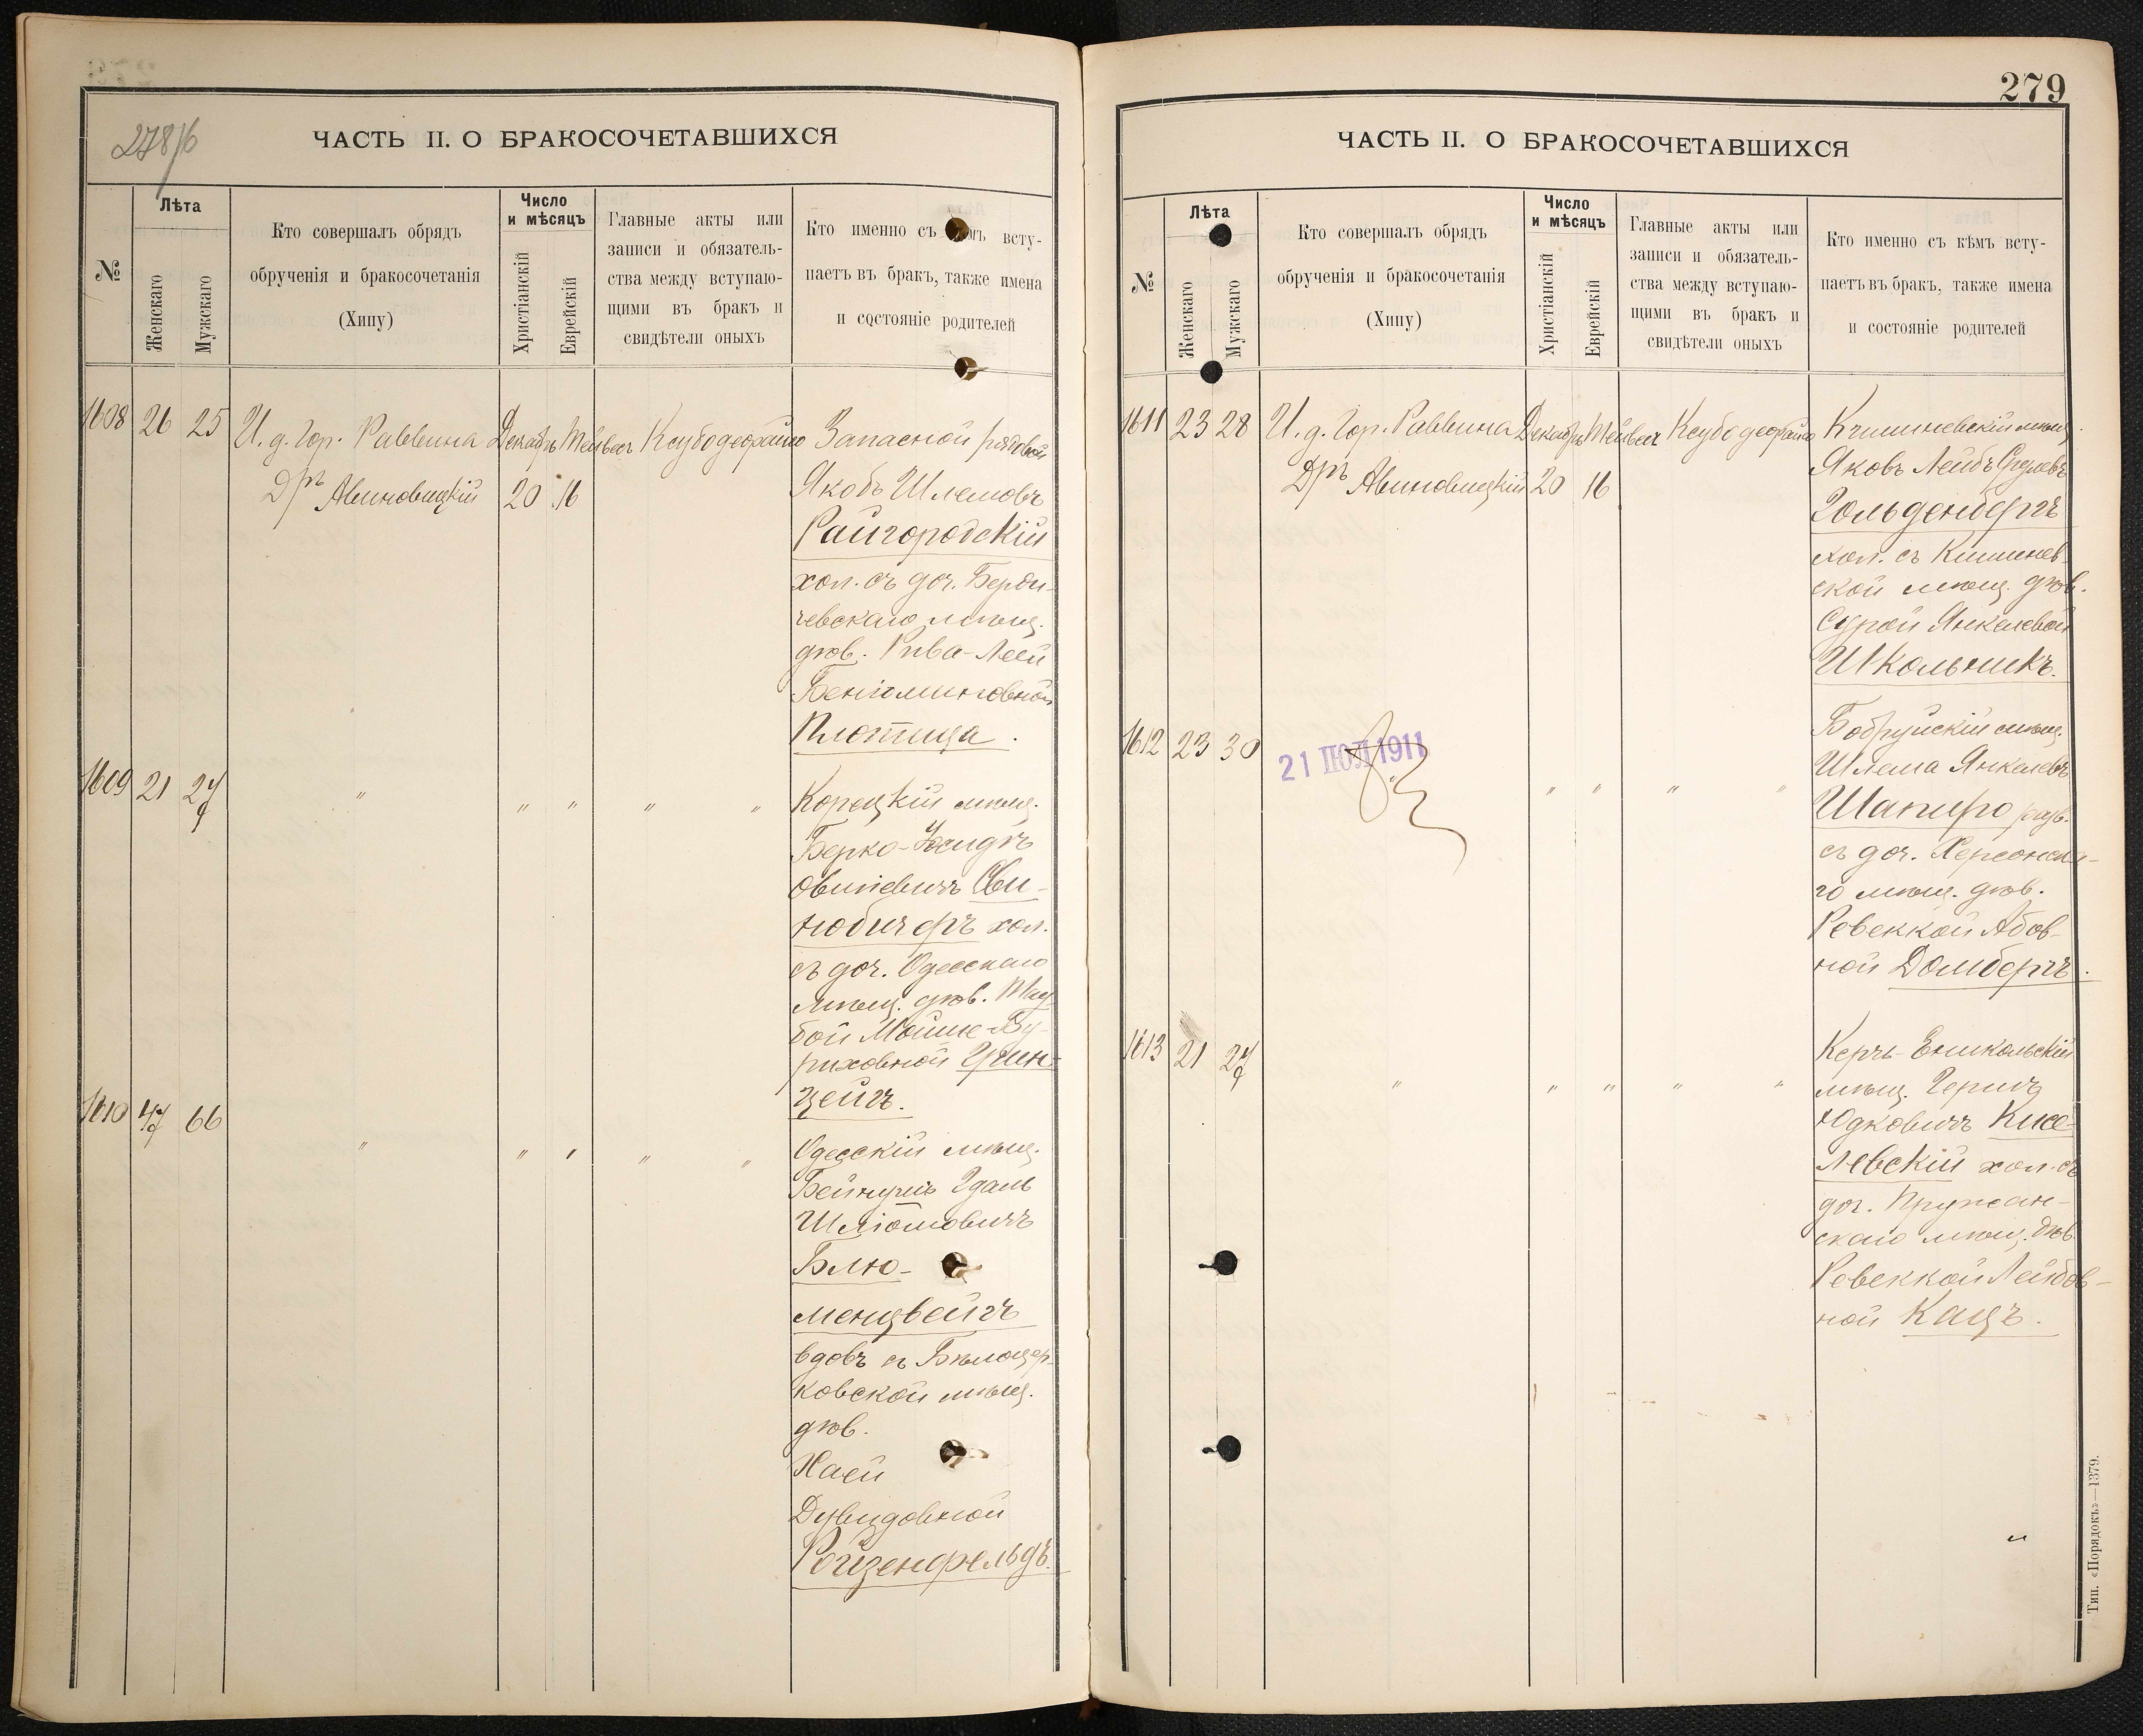 278/б
ЧАСТЬ II. О БРАКОСОЧЕТАВШИХСЯ
№
Лѣта
Женскаго
Мужскаго
Кто совершалъ обрядъ
обрученія и бракосочетанія
(Хипу)
Число
и мѣсяцъ
Христіанскій
Еврейскій
Главные акты или
записи и обязатель-
ства между вступаю-
щими въ бракъ и
свидѣтели оныхъ
Кто именно съ всту-
паетъ въ бракъ, также имена
и состояніе родителей
1608 26 25 И. д. Гор. Раввина Декабрь Тейвес Ксубодеорайсо Запасной рядовой
Дръ Авиновицкій 20 16 Якобъ Шлемовъ
Райгородскій
хол. съ доч. Берди-
чевскаго мѣщ.
дѣв. Рива-Леей
Беніаминовной
Плотица.
1609 21 27 " " " " " Корецкій мѣщ.
Берко-
Овшіевичъ Сви-
нюбичеръ хол.
съ доч. Одесскаго
мѣщ. дѣв. Тау-
бой Мойше-Бу-
риховной Грин-
цейгъ.
1610 47 66 " " " " " Одесскій мѣщ.
Бейнушъ Гдаль
Шліомовичъ
Блю-
менцвейгъ
вдовъ съ Бѣлоцер-
ковской мѣщ.
дѣв.
Хаей
Дувидовной
Ройзенфельдъ.
279
ЧАСТЬ II. О БРАКОСОЧЕТАВШИХСЯ
№
Лѣта
Женскаго
Мужскаго
Кто совершалъ обрядъ
обрученія и бракосочетанія
(Хипу)
Число
и мѣсяцъ
Христіанскій
Еврейскій
Главные акты или
записи и обязатель-
ства между вступаю-
щими въ бракъ и
свидѣтели оныхъ
Кто именно съ кѣмъ всту-
паетъ въ бракъ, также имена
и состояніе родителей
1611 23 28 И. д. Гор. Раввина Декабрь Тейвес Ксубодеорайсо Кишиневскій мѣщ.
Дръ Авиновицкій 20 16 Яковъ Лейбъ
Гольденбергъ
хол. съ Кишинев-
ской мѣщ. дѣв.
Сурой Янкелевой
Школьникъ.
1612 23 30 21 ІЮЛ 1911 " " " " Бобруйскій мѣщ.
Шлема Янкелевъ
Шапиро разв.
съ доч. Херсонска-
го мѣщ. дѣв.
Ревеккой Абов-
ной Домбергъ.
1613 21 27 " " " " " Керчь-Еникольскій
мѣщ. Гершъ
Юдковичъ Кисе-
левскій хол. съ
доч. Пружан-
скаго мѣщ. дѣв.
Ревеккой Лейбов-
ной Кацъ.
Тип. «Порядокъ»—1379.